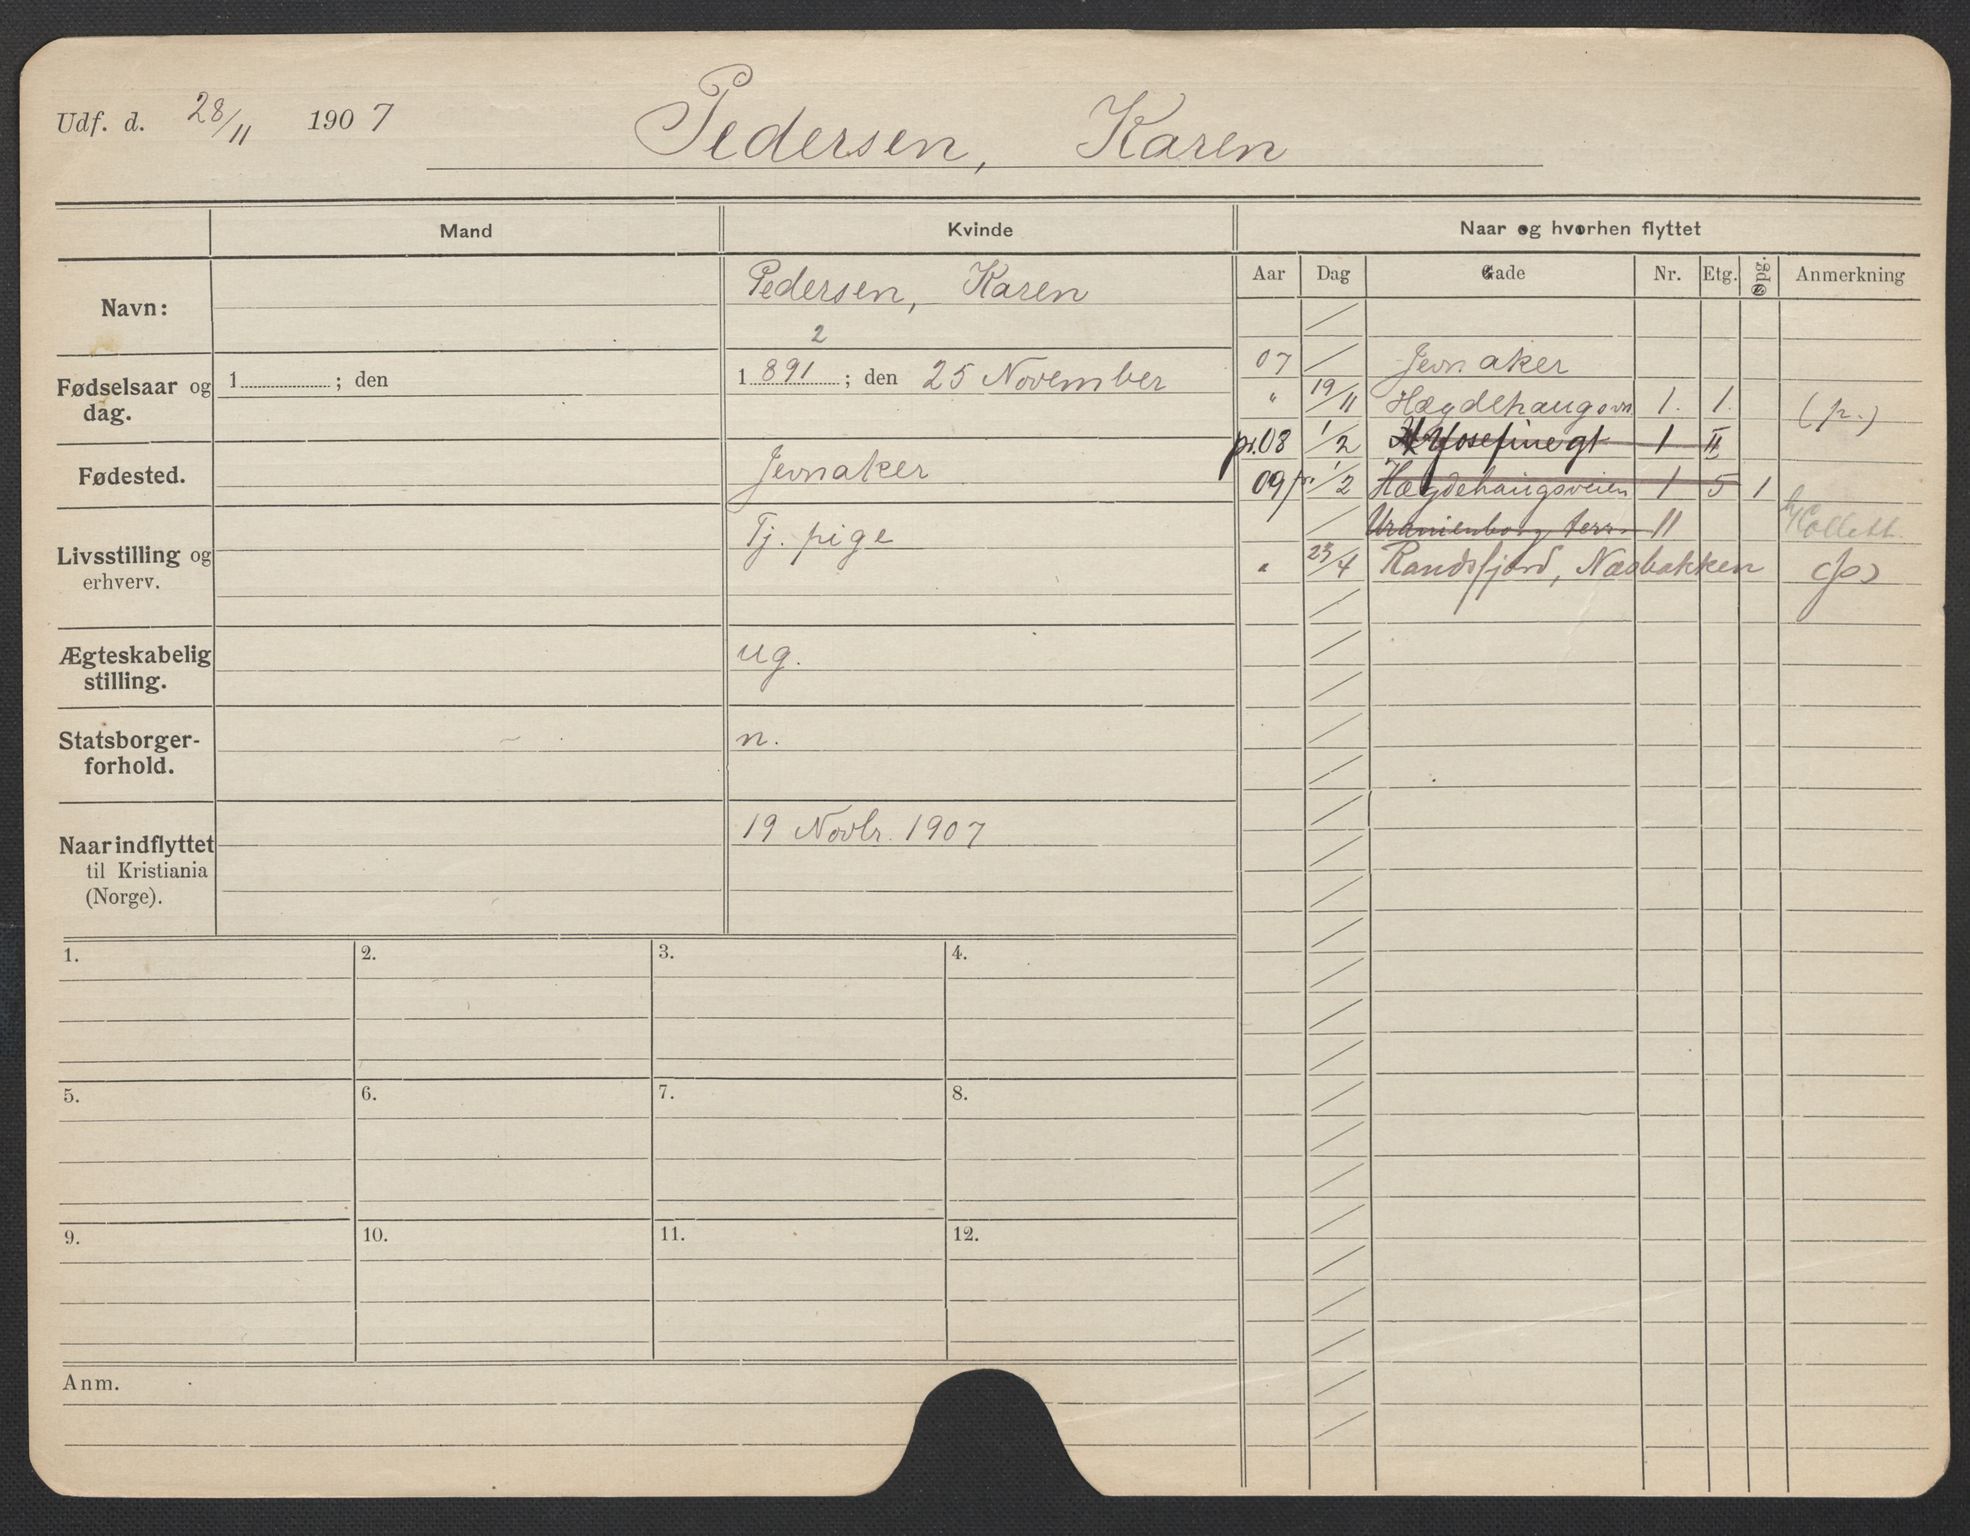 Udf. d. 28/11 1907
Pedersen, Karen
Mand
Kvinde
Naar og hvorhen flyttet
Aar Dag Gade Nr. Etg. Opg. Anmerkning
Navn:
Pedersen, Karen
2
Fødselsaar og dag.
1 ; den
1 891 ; den 25 November
Fødested.
Jevnaker
Livsstilling og
erhverv.
Tj. pige
Ægteskabelig
stilling.
ug.
Statsborger-
forhold.
n.
Naar indflyttet
til Kristiania
(Norge).
19 Novbr. 1907
07 / Jevnaker
" 19/11 Hægdehaugsvn. 1. 1. (p.)
pr. 08 1/2 Josefinegt 1 II
09 pr. 1/2 Hægdehaugsveien 1 5 1
/ Uranienborg terr. 11 Collett.
" 23/4 Randsfjord, Næsbakken (p)
1. 2. 3. 4.
5. 6. 7. 8.
9. 10. 11. 12.
Anm.